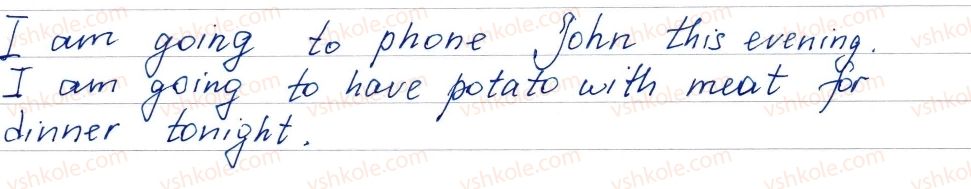 I am going to phone John this evening.
I am going to have potato with meat for
dinner tonight.